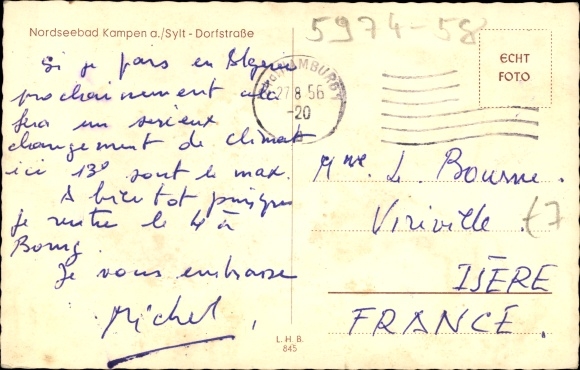 Nordseebad Kampen a./Sylt - Dorfstraße
5974-58
Si je pars en Algérie
prochainement cela
fera un sérieux
changement de climat
ici 13° sont le max.
A bientôt puisque
je rentre le 4 à
Bourg.
Je vous embrasse
Michel,
HAMBURG
27.8.56
-20
ECHT
FOTO
Mme L. Bourne.
Viriville.
£7
ISÈRE
FRANCE.
L. H. B.
845